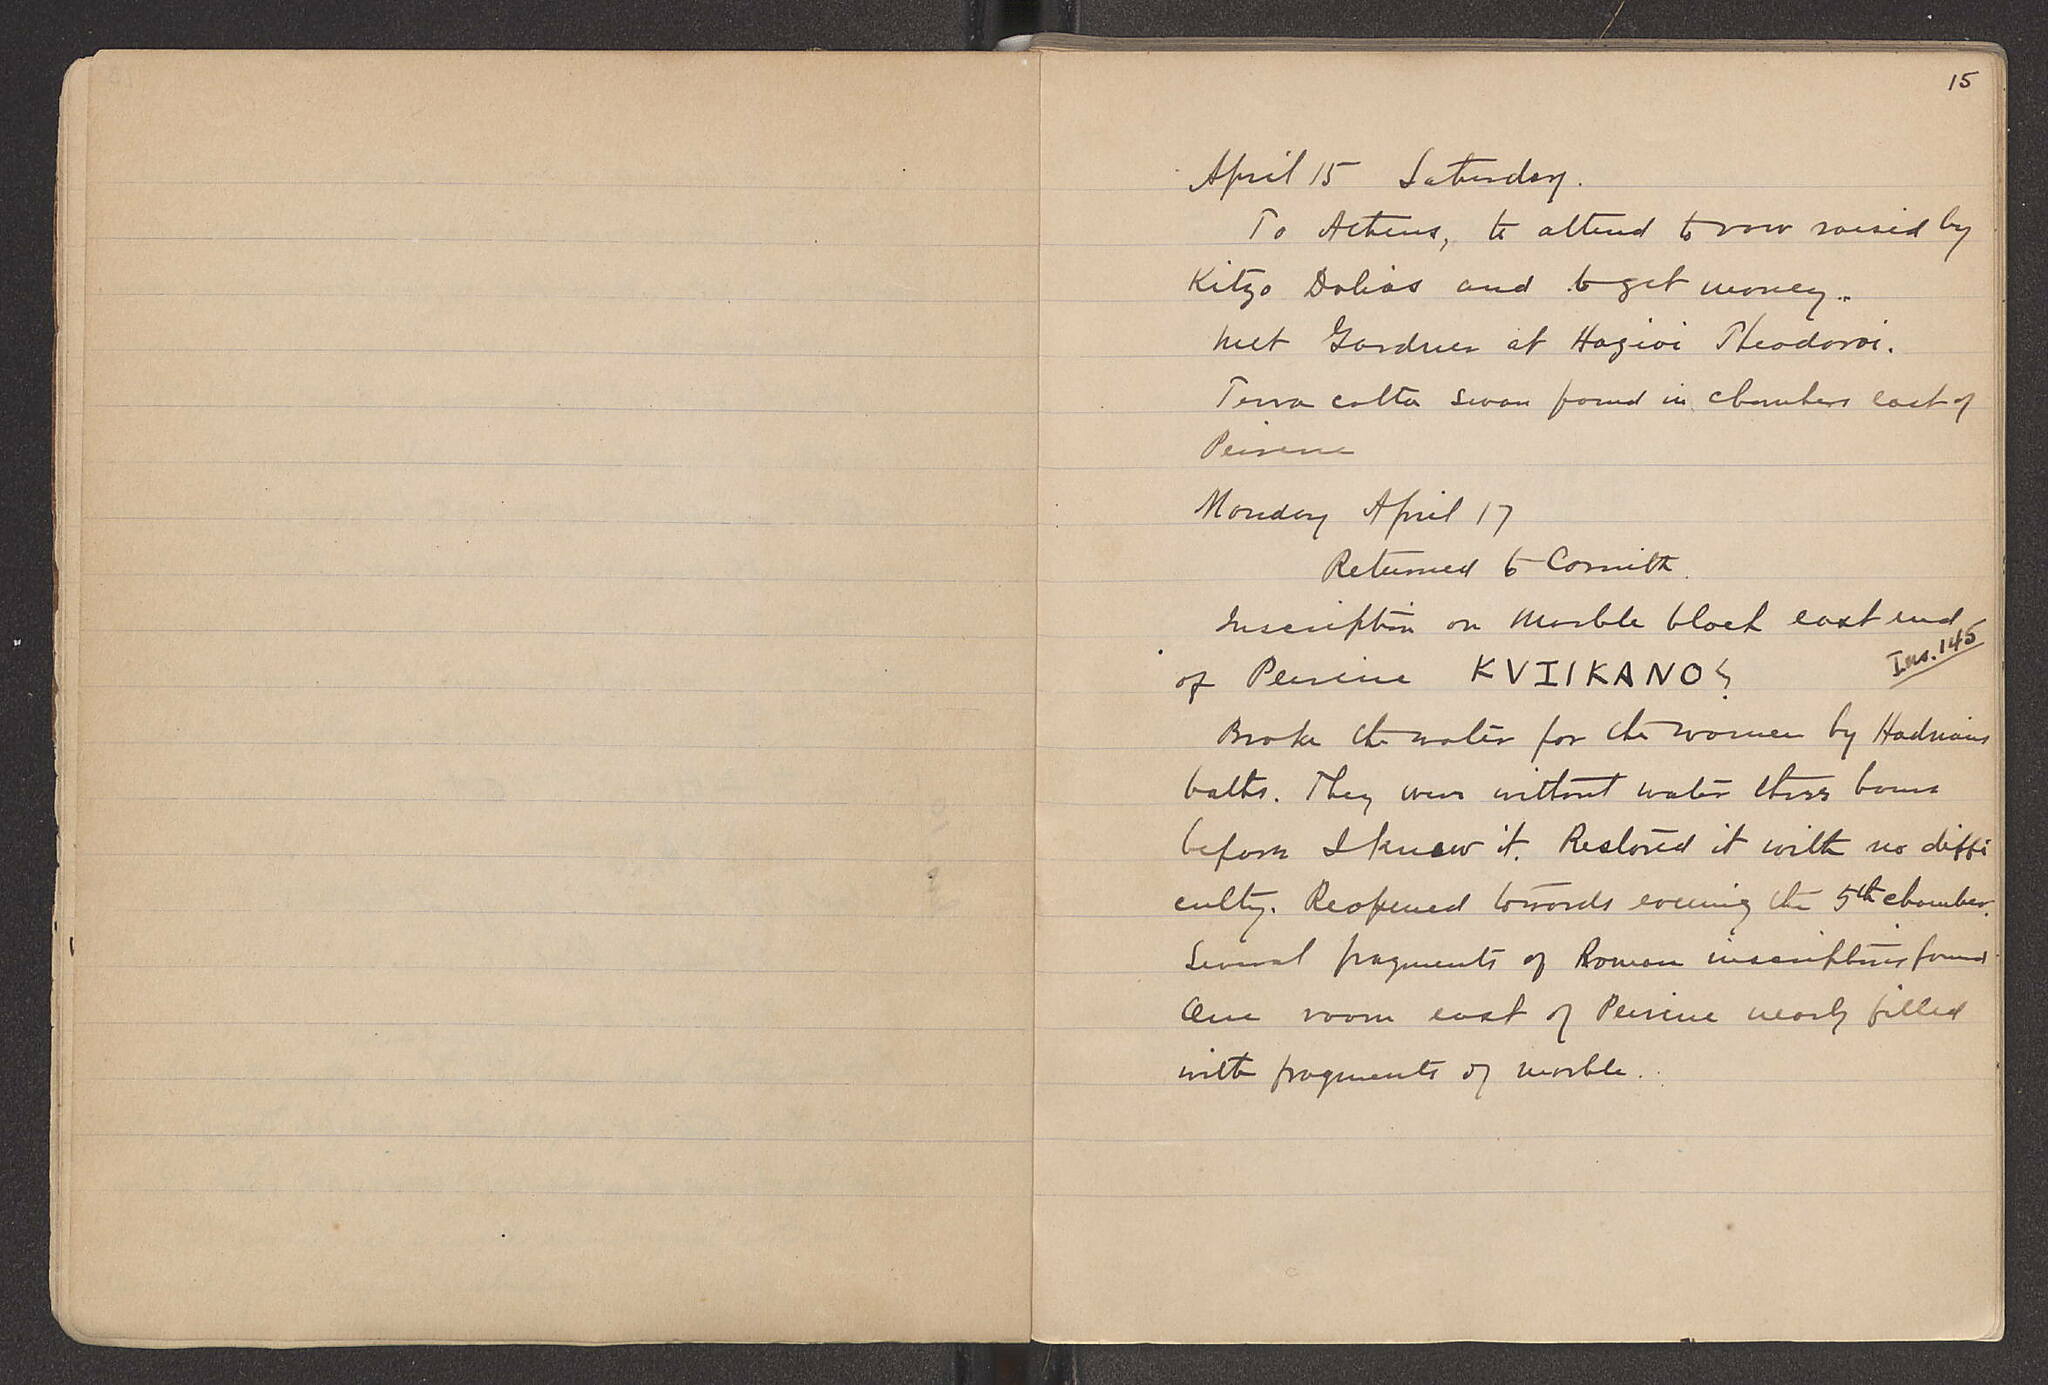 15
April 15 Saturday.
To Athens, to attend to row raised by
Kitzo Dalias and to get money..
Met Gardner at Hagioi Theodoroi.
Terra cotta swan found in chambers east of
Peirene
Monday April 17
Returned to Corinth.
Inscription on marble block east end
of Peirene KVIIKANOS
Ins. 145
Broke the water for the women by Hadrians
baths. They were without water three hours
before I knew it. Restored it with no diffi
culty. Reopened towards evening the 5th chamber.
Several fragments of Roman inscriptions found
One room east of Peirene nearly filled
with fragments of marble.